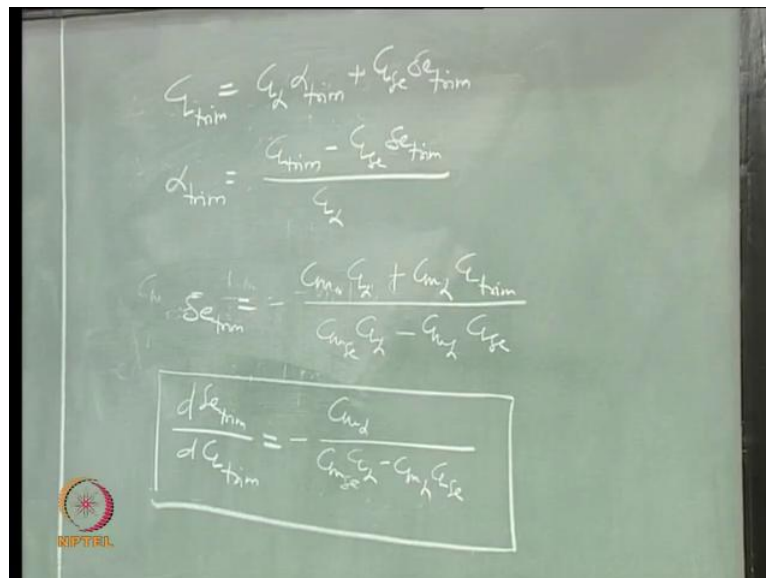 C_L_trim = C_L_α α_trim + C_L_δe δe_trim
α_trim = (C_L_trim - C_L_δe δe_trim) / C_L_α
δe_trim = - (C_m_0 C_L_α + C_m_α C_L_trim) / (C_m_δe C_L_α - C_m_α C_L_δe)
dδe_trim / dC_L_trim = - C_m_α / (C_m_δe C_L_α - C_m_α C_L_δe)
NPTEL